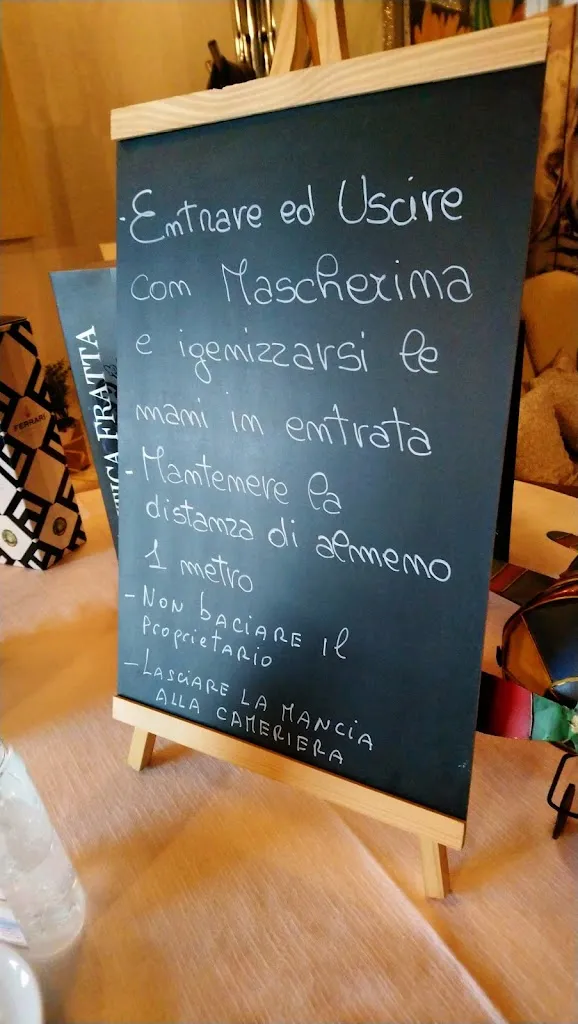 - Entrare ed Uscire
con Mascherina
e igenizzarsi le
mani in entrata
- Mantenere la
distanza di almeno
1 metro
- NON bACIARE Il
Proprietario
- LASCIARE LA MANCIA
ALLA CAMERIERA
TICA FRATTA
FERRARI